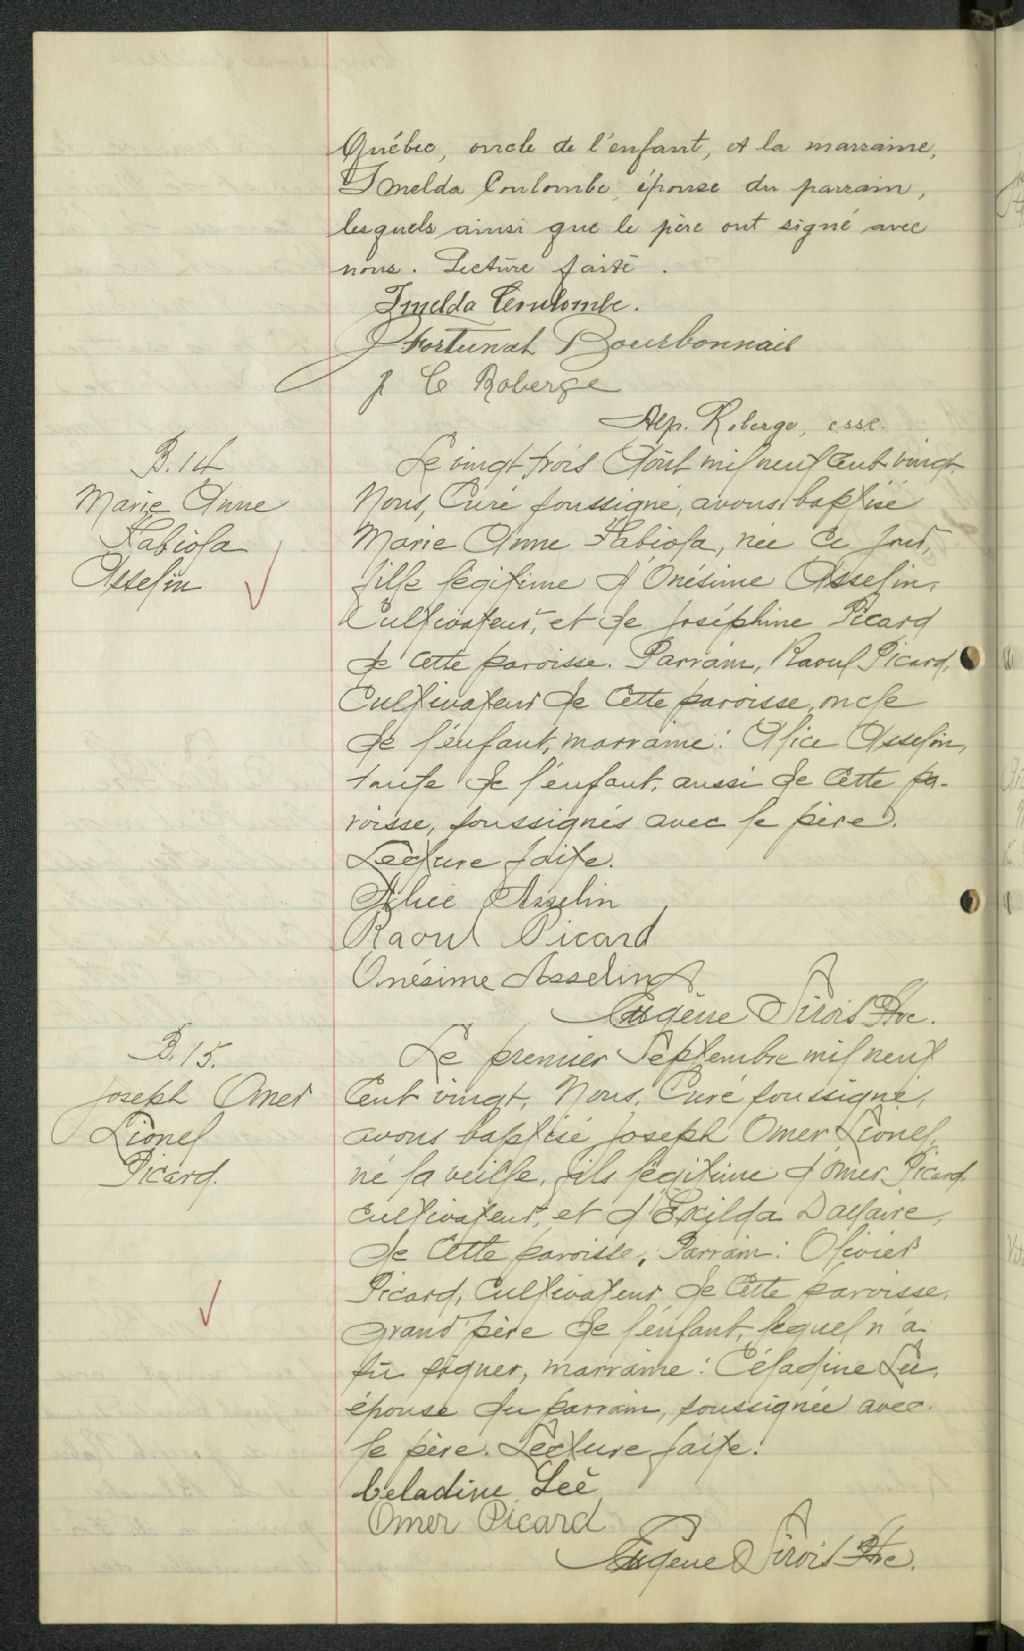 Québec, oncle de l'enfant, et la marraine,
Imelda Coulombe, épouse du parrain,
lesquels ainsi que le père ont signé avec
nous. Lecture faite.
Imelda Coulombe.
Fortunat Bourbonnais
J C Roberge
Alp. Roberge,
B. 14
Marie Anne
Fabiola
Asselin
Le vingt trois Août mil neuf cent vingt.
Nous, Curé soussigné, avons baptisé
Marie Anne Fabiola, née ce jour,
fille légitime d'Onésime Asselin,
Cultivateur, et de Joséphine Picard
de cette paroisse. Parrain, Raoul Picard,
Cultivateur de cette paroisse, oncle
de l'enfant, marraine: Alice Asselin,
tante de l'enfant, aussi de cette pa-
roisse, soussignés avec le père.
Lecture faite.
Alice Asselin
Raoul Picard
Onésime Asselin
Eugène Sirois Ptre.
B. 15.
Joseph Omer
Lionel
Picard.
Le premier Septembre mil neuf
cent vingt, Nous, Curé soussigné,
avons baptisé Joseph Omer Lionel,
né la veille, fils légitime d'Omer Picard
cultivateur, et d'Exilda Dallaire,
de cette paroisse. Parrain: Olivier
Picard, Cultivateur de cette paroisse,
grand'père de l'enfant, lequel n'a
su signer, marraine: Céladine Lée,
épouse du parrain, soussignée avec
le père. Lecture faite.
Celadine Leé
Omer Picard
Eugène Sirois Ptre.